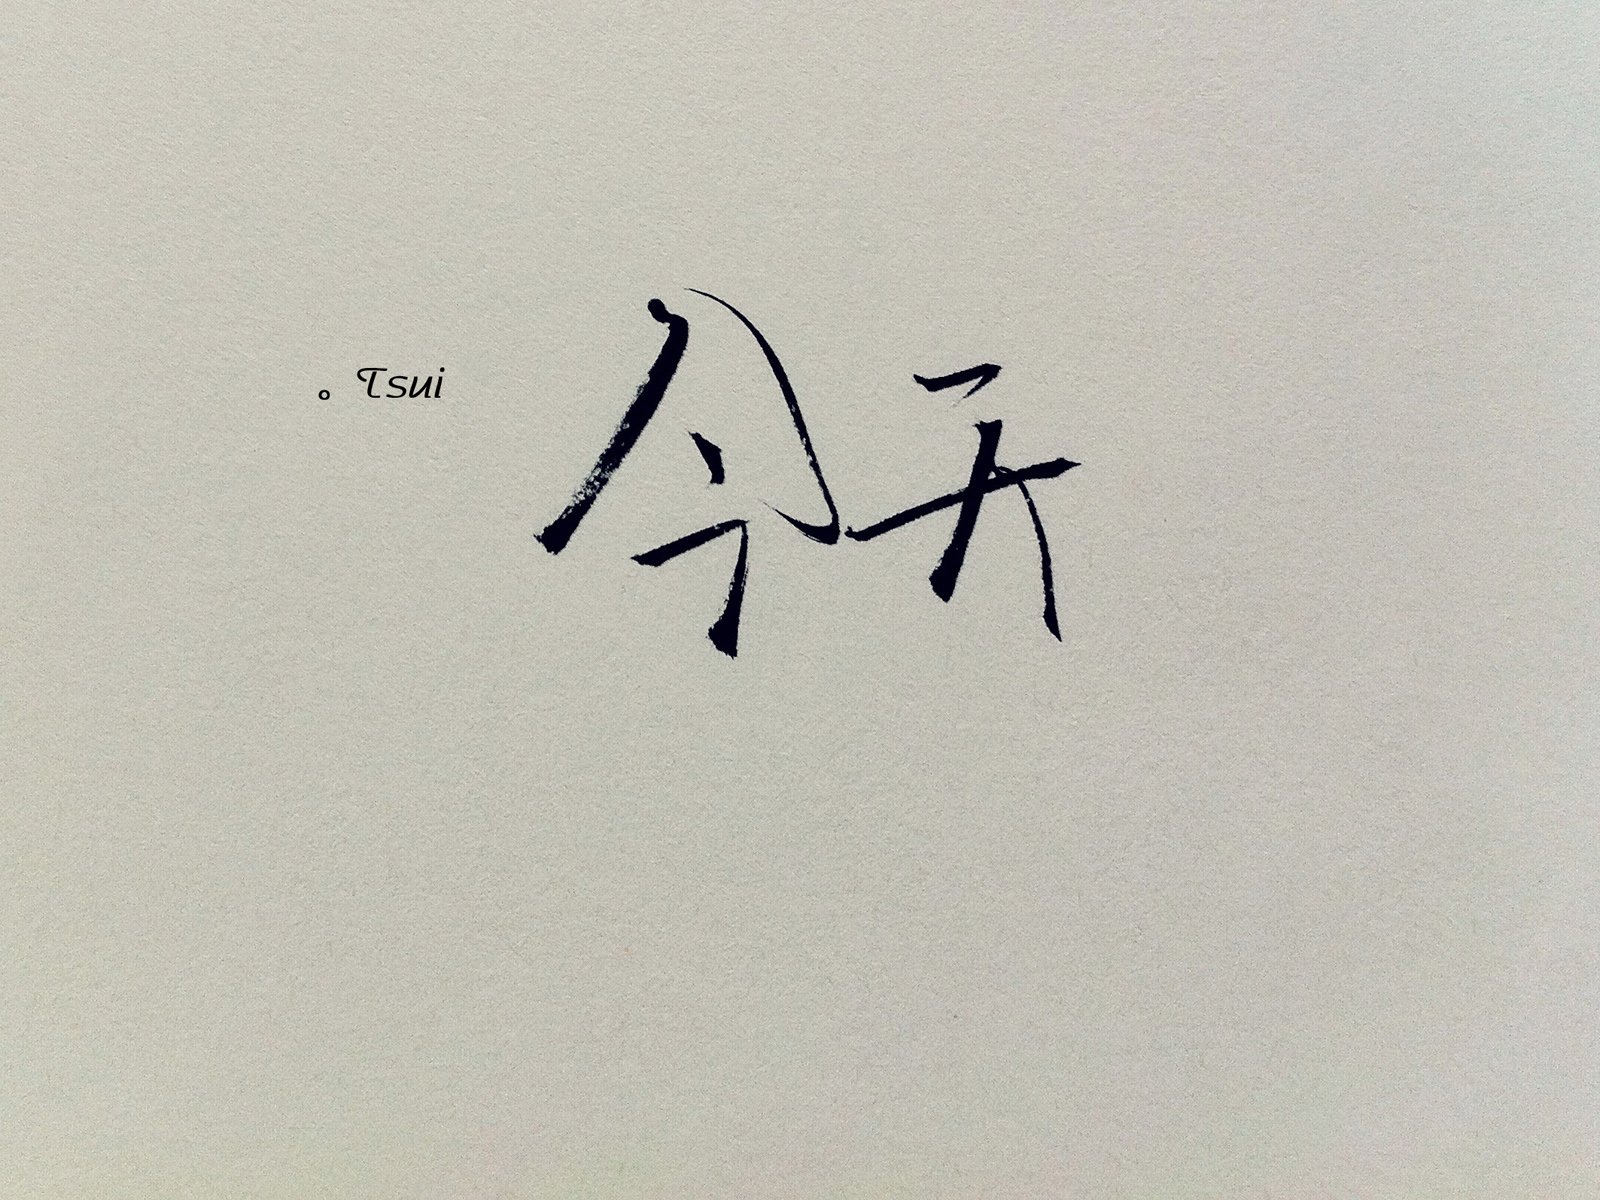 。Tsui
今天